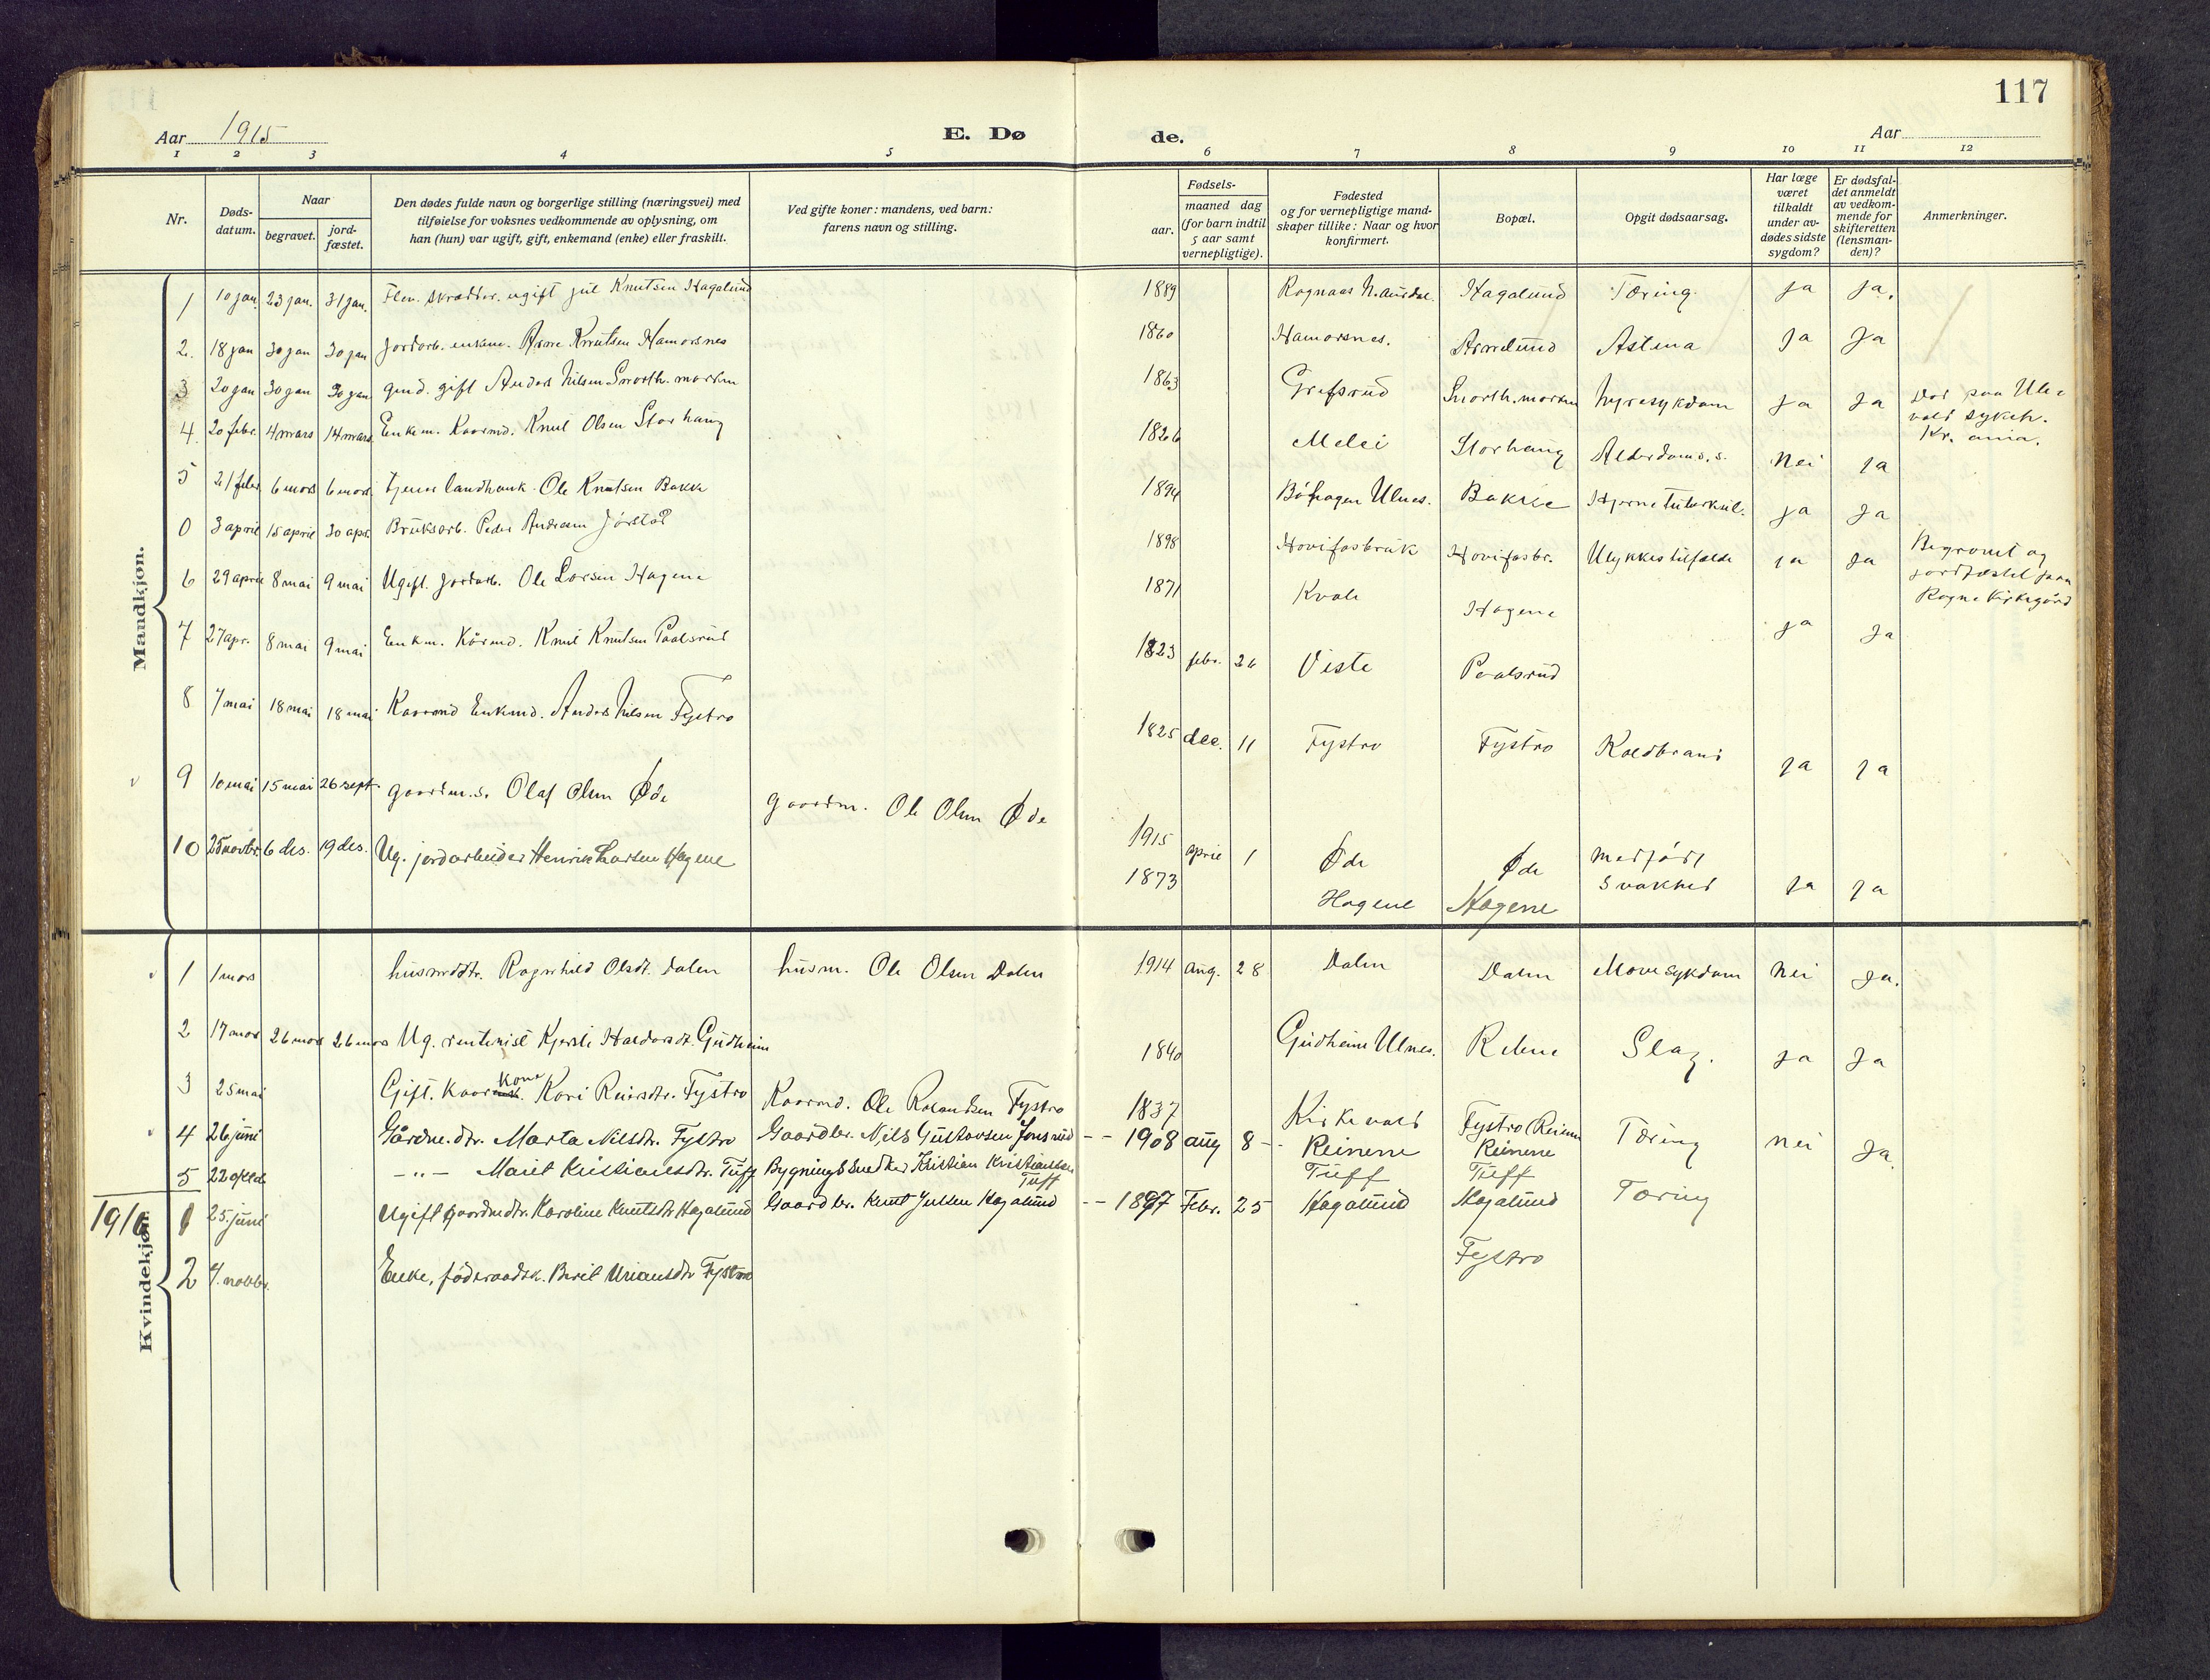 117
Aar 1915
E. Dø
de.
Aar
1 2 3 4 5 6 7 8 9 10 11 12
Nr.
Døds-
datum.
Naar
begravet.
jord-
fæstet.
Den dødes fulde navn og borgerlige stilling (næringsvei) med
tilføielse for voksnes vedkommende av oplysning, om
han (hun) var ugift, gift, enkemand (enke) eller fraskilt.
Ved gifte koner: mandens, ved barn:
farens navn og stilling.
Fødsels-
aar.
maaned dag
(for barn indtil
5 aar samt
vernepligtige).
Fødested
og for vernepligtige mand-
skaper tillike: Naar og hvor
konfirmert.
Bopæl.
Opgit dødsaarsag.
Har læge
været
tilkaldt
under av-
dødes sidste
sygdom?
Er dødsfal-
det anmeldt
av vedkom-
mende for
skifteretten
(lensman-
den)?
Anmerkninger.
Mandkjøn.
1 10 jan. 23 jan. 31 jan. skrædder. ugift Jul Knutsen Hagalund 1889 Rognaas N. Aurdal. Hagalund Tæring. Ja Ja.
2. 18 jan 30 jan 30 jan Jordarb. enkem. Arne Knutsen Hamorsnes 1860 Hamorsnes. Arnelund Astma Ja Ja
3 20 jan 30 jan 30 jan gmd. gift Anders Nilsen 1863 Grefsrud Nyresykdom Ja Ja Død paa Ule-
vold sykeh.
Kr.ania.
4. 20 febr. 4 mars 14 mars Enkem. Kaarmd. Knut Olsen Storhaug 1826 Melei Storhaug Alderdoms.s. Nei Ja
5 21 febr 6 mars 6 mars tjener landhank. Ole Knutsen Bakke 1894 Ulnes. Bakke Hjernetuberkul. Ja Ja
0 3 april 15 april 30 apr. Bruksarb. Peder Andersen Jörstad 1898 Hovifosbruk Hovifosbr. Ulykkestilfælde Ja Ja Begravet og
jordfæstet paa
Rogne Kirkegård
6 29 april 8 mai 9 mai Ugift. Jordarb. Ole Larsen Hagene 1871 Kvale Hagene Ja Ja
7 27 apr. 8 mai 9 mai Enkm. Kårmd. Knut Knutsen Paalsrud 1823 febr. 26 Viste Paalsrud
8 7 mai 18 mai 18 mai Kaarmd Enkmd. Anders Nilsen Fystro 1825 dec. 11 Fystro Fystro Koldbrand Ja Ja
9 10 mai 15 mai 26 sept. gaardm.s. Olaf Olsen Øde gaardm. Ole Olsen Øde 1915 april 1 Øde Øde medfödt
svakhed Ja Ja
10 25 novbr. 6 des. 19 des. Ug. jordarbeider Henrik Larsen Hagene 1873 Hagene Hagene
Kvindekjøn.
1 1 mars husmdtr. Ragnhild Olsdt. Dalen husm. Ole Olsen Dalen 1914 aug. 28 Dalen Dalen Mavesykdom Nei Ja.
2 17 mars 26 mars 26 mars Ug. rentenist Kjersti Haldorsdt. Gudheim 1840 Gudheim Ulnes. Slag. Ja Ja
3 25 mai Gift. Kaar kone Kari Reiersdtr. Fystro Kaarmd. Ole Rolandsen Fystro 1837 Kirkevold Fystro
4 26 juni Gårdne.dtr. Marta Nilsdtr. Fystro Gaardbr. Nils Gustavsen Jonsrud -- 1908 aug 8 - Reinene Reinene Tæring Nei Ja.
5 22 oktob. - " - Marit Kristiansdtr. Tuff Bygningssnedker Kristian Kristiansen
Tuff Tuff Tuff
1916 1 25. juni Ugift gaardmdtr. Karoline Knutsdtr. Hagalund Gaardbr. Knut Julsen Hagalund -- 1897 Febr. 25 Hagalund Hagalund Tæring
2 4. novbr. Enke, föderaadsk. Berit Uriansdtr Fystro Fystro